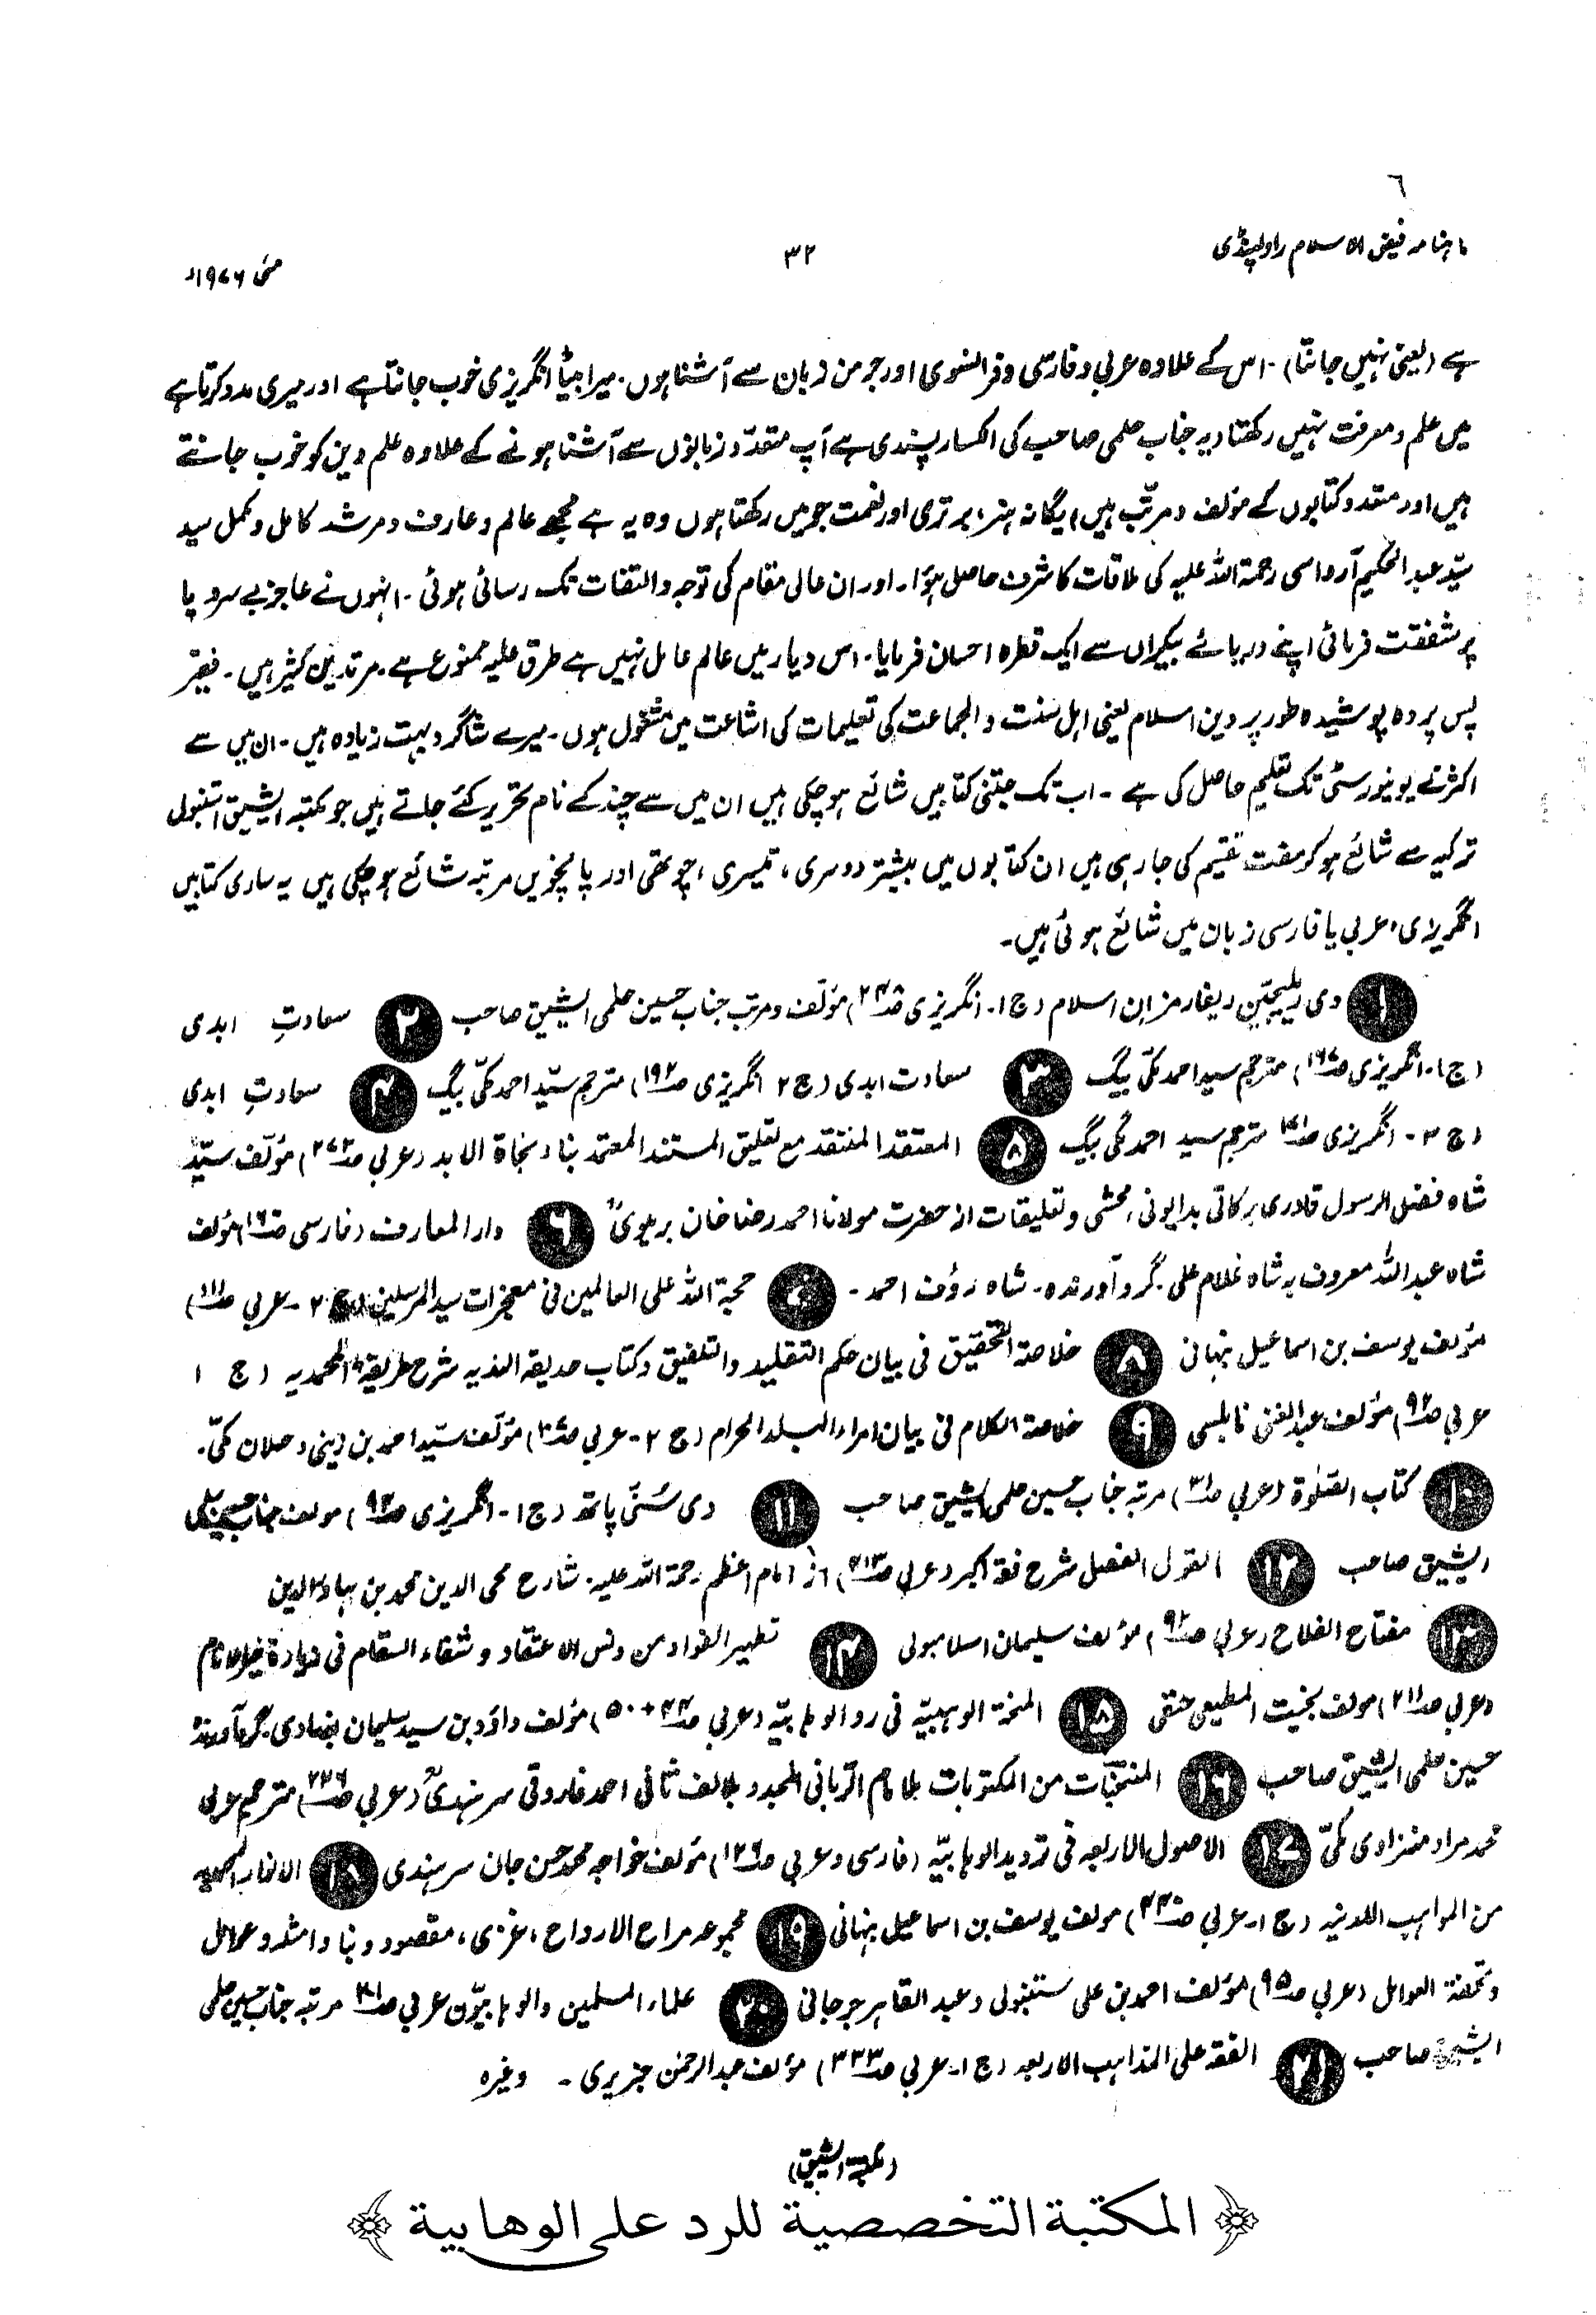 ٦
ماہنامہ فیض الاسلام راولپنڈی
۳۲
مئی ۱۹۷۶ء
ہے (یعنی نہیں جانتا)۔ اس کے علاوہ عربی و فارسی و فرانسوی اور جرمن زبان سے آشنا ہوں۔ میرا بیٹا انگریزی خوب جانتا ہے اور میری مدد کرتا ہے
میں علم و معرفت نہیں رکھتا (یہ جناب حلمی صاحب کی انکسار پسندی ہے آپ متعدّد زبانوں سے آشنا ہونے کے علاوہ علم دین کو خوب جانتے
ہیں اور متعدد کتابوں کے مؤلف و مرتّب ہیں) یگانہ ہنر، برتری اور نعمت جو میں رکھتا ہوں وہ یہ ہے مجھے عالم و عارف و مرشد کامل و مکمل سید
سیّد عبد الحکیم آرواسی رحمۃ اللہ علیہ کی ملاقات کا شرف حاصل ہؤا۔ اور ان عالی مقام کی توجہ و التفات تک رسائی ہوئی۔ انہوں نے عاجز بے سروپا
پر شفقت فرمائی اپنے دریائے بیکراں سے ایک قطرہ احسان فرمایا۔ اس دیار میں عالم عامل نہیں ہے طرق علیہ ممنوع ہے۔ مرتدین کثیر ہیں۔ فقیر
پس پردہ پوشیدہ طور پر دین اسلام یعنی اہل سنت والجماعت کی تعلیمات کی اشاعت میں مشغول ہوں۔ میرے شاگرد بہت زیادہ ہیں۔ ان میں سے
اکثر نے یونیورسٹی تک تعلیم حاصل کی ہے۔ اب تک جتنی کتابیں شائع ہو چکی ہیں ان میں سے چند کے نام تحریر کئے جاتے ہیں جو مکتبہ ایشیق استنبول
ترکیہ سے شائع ہو کر مفت تقسیم کی جا رہی ہیں ان کتابوں میں بیشتر دوسری، تیسری، چوتھی اور پانچویں مرتبہ شائع ہو چکی ہیں یہ ساری کتابیں
انگریزی، عربی یا فارسی زبان میں شائع ہوئی ہیں۔
۱ دی ریلیجیّن ریفارمز ان اسلام (ج ۱۔ انگریزی) مؤلف و مرتب جناب حسین حلمی ایشیق صاحب ۲ سعادتِ ابدی
(ج ۱۔ انگریزی) مترجم سید احمد مکّی بیگ ۳ سعادت ابدی (ج ۲ انگریزی صـ۱۹۲) مترجم سیّد احمد مکّی بیگ ۴ سعادتِ ابدی
(ج ۳۔ انگریزی) مترجم سید احمد مکی بیگ ۵ المعتقد المنتقد مع تعلیق المستند المعتمد بناء نجاۃ الابد (عربی صـ۲۷۲) مؤلف سیّد
شاہ فضل الرسول قادری برکاتی بدایونی، محشی و تعلیقات از حضرت مولانا احمد رضا خان بریلویؒ ۶ دار المعارف (فارسی) مؤلف
شاہ عبد اللہ معروف بہ شاہ غلام علی۔ گرد آورندہ۔ شاہ رؤف احمد۔ ۷ حجۃ اللہ علی العالمین فی معجزات سید المرسلین (ج ۲۔ عربی)
مؤلف یوسف بن اسماعیل نبہانی ۸ خلاصۃ التحقیق فی بیان حکم التقلید والتلفیق و کتاب حدیقۃ الندیہ شرح طریقۃ المحمدیہ (ج ۱
عربی صـ۹۲) مؤلف عبد الغنی نابلسی ۹ خلاصۃ الکلام فی بیان امراء البلد الحرام (ج ۲۔ عربی) مؤلف سیّد احمد بن زینی دحلان مکّی۔
۱۰ کتاب الصّلوٰۃ (عربی) مرتبہ جناب حسین حلمی ایشیق صاحب ۱۱ دی سُنّی پاتھ (ج ۱۔ انگریزی) مولف جناب حسین حلمی
ایشیق صاحب ۱۲ القول الفصل شرح فقہ اکبر (عربی) از امام اعظم رحمۃ اللہ علیہ۔ شارح محی الدین محمد بن بہاؤ الدین
۱۳ مفتاح الفلاح (عربی) مؤلف سلیمان اسلامبولی ۱۴ تطہیر الفواد من دنس الاعتقاد و شفاء السقام فی زیارۃ خیر الانام
(عربی صـ۲۱۱) مولف بخیت المطیعی حنفی ۱۵ المنحۃ الوہبیّہ فی رد الوہابیّہ (عربی) مؤلف داؤد بن سید سلیمان بغدادی۔ گرد آورندہ
حسین حلمی ایشیق صاحب ۱۶ المنتخبات من المکتوبات للامام الرّبانی المجدد للالف ثانی احمد فاروقی سرہندیؒ (عربی) مترجم عربی
محمد مراد منزاوی مکّی ۱۷ الاصول الاربعہ فی تردید الوہابیّہ (فارسی و عربی) مؤلف خواجہ محمد حسن جان سرہندی ۱۸ الانوار المحمدیہ
من المواہب اللدنیہ (ج ۱۔ عربی) مولف یوسف بن اسماعیل نبہانی ۱۹ مجموعہ مراح الارواح، عزی، مقصود و بناء و امثلہ و عوامل
و تحفۃ العوامل (عربی صـ۹۵) مؤلف احمد بن علی ستنبولی و عبد القاہر جرجانی ۲۰ علماء المسلمین والوہابیّون عربی مرتبہ جناب حسین حلمی
ایشیق صاحب ۲۱ الفقہ علی المذاہب الاربعہ (ج ۱۔ عربی صـ۳۳۳) مؤلف عبد الرحمن جزیری۔ وغیرہ
(مکتبہ ایشیق)
المكتبة التخصصية للرد على الوهابية